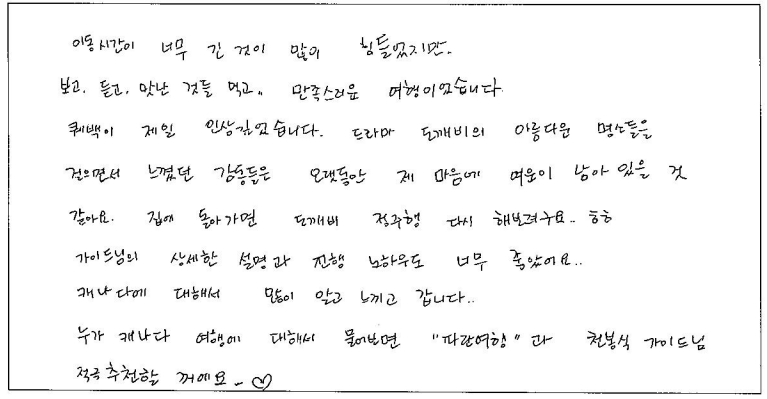 이동시간이 너무 긴 것이 많이 힘들었지만..
보고, 듣고, 맛난 것들 먹고.. 만족스러운 여행이었습니다
퀘백이 제일 인상깊었습니다. 드라마 도깨비의 아름다운 명소들을
걸으면서 느꼈던 감동들은 오랫동안 제 마음에 여운이 남아 있을 것
같아요. 집에 돌아가면 도깨비 정주행 다시 해보려구요.. ㅎㅎ
가이드님의 상세한 설명과 진행 노하우도 너무 좋았어요..
캐나다에 대해서 많이 알고 느끼고 갑니다..
누가 캐나다 여행에 대해서 물어보면 "파란여행"과 천봉식 가이드님
적극추천할 꺼예요.. ♡